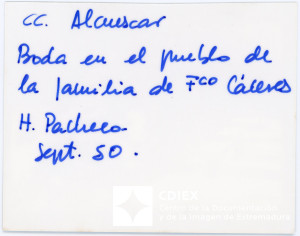 CC. Alcuescar
Boda en el pueblo de
la familia de Fco Cáceres
H. Pacheco
Sept. 50.
CDIEX